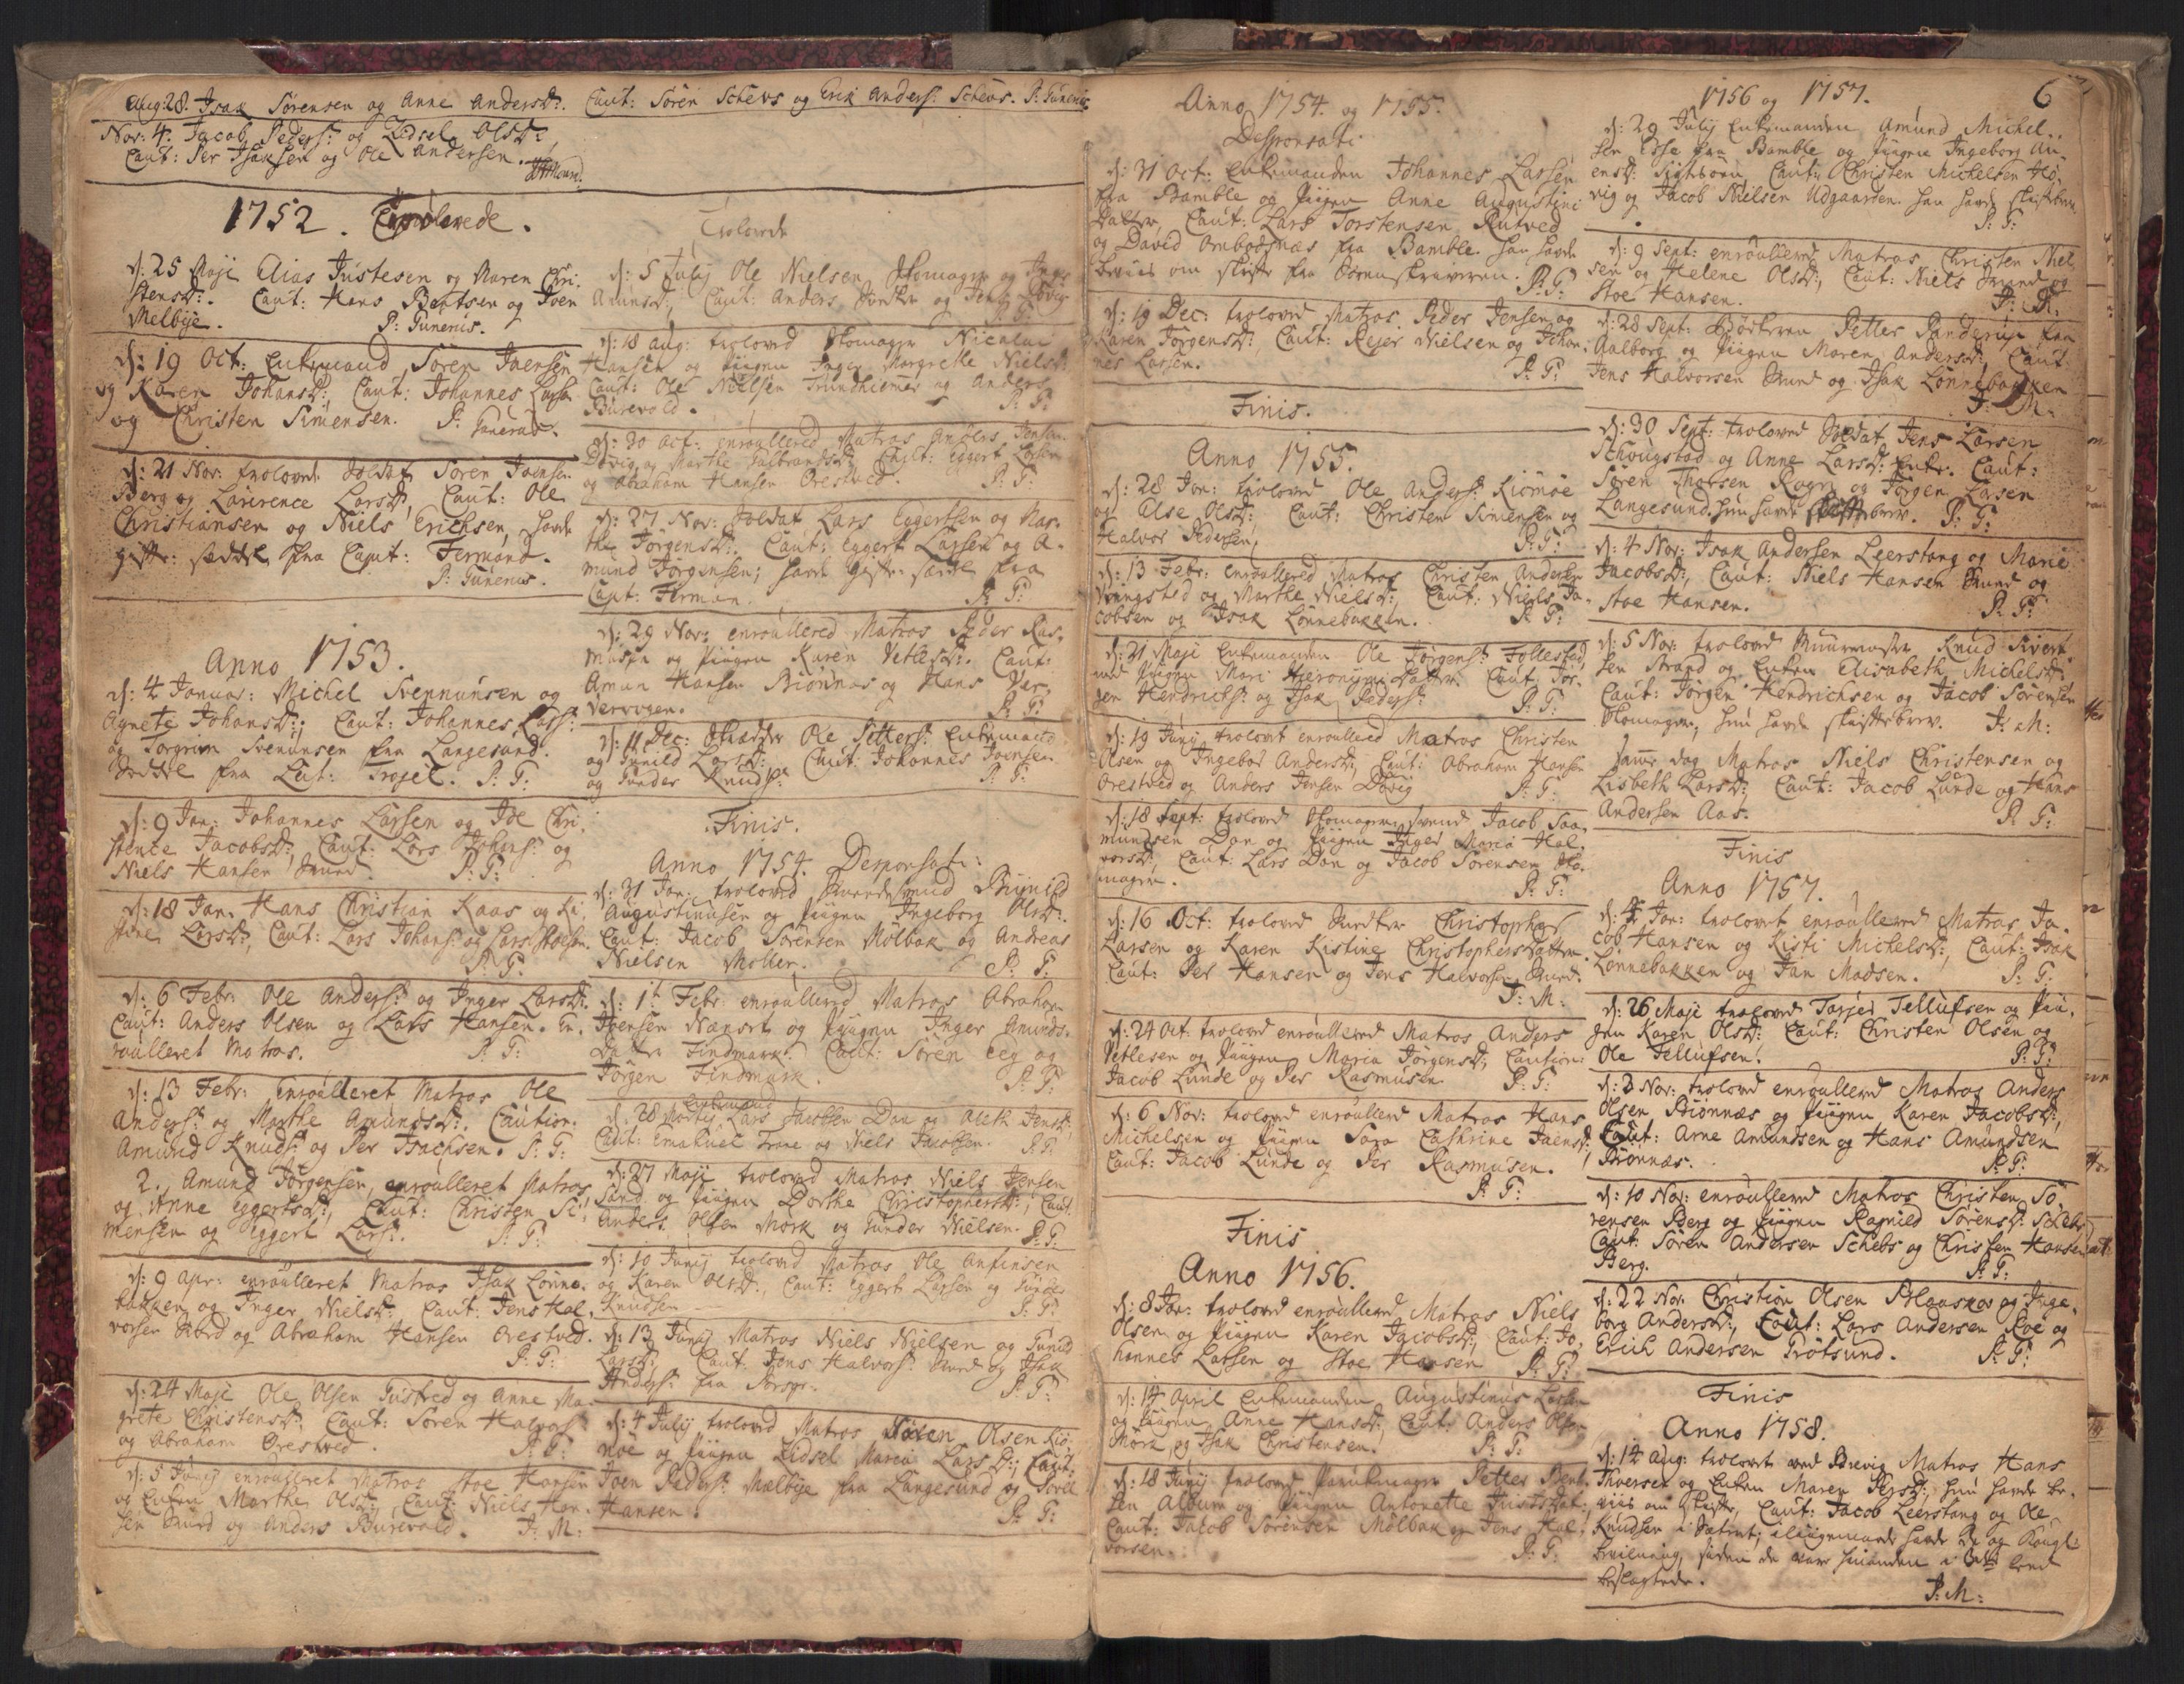 Aug: 28. Isak Sørensen og Anne Andersd: Caut: Søren Schevs og Erik Anders: Schevs. P: Gunerius.
Nov: 4. Jacob Peders: og Zidsel Olsd:
Caut: Per Isaksen og Ole Andersen.
1752. Trolovede.
d: 25 Maji Elias Justesen og Maren Chri-
stensd: Caut: Hans Bentsen og Joen
Melbije. P: Gunerius.
d: 19 Oct: Enkemand Søren Joensen
og Karen Johansd: Caut: Johannes Lars:
og Christen Simensen. P: Gunerius.
d: 21 Nov: trolovede Soldat Søren Joensen
Berg og Lårerence Larsd, Caut: Ole
Christiansen og Niels Erichsen, havde
gifte-seddel fra Capt: Fermand.
P: Gunerius.
Anno 1753.
d: 4 Januar: Michel Svennunsen og
Agnete Johansd: Caut: Johannes Lars:
og Torgrim Svenunsen fra Langesund.
Seddel fra Leut: Trojel. P: G:
d: 9 Jan: Johannes Larsen og Ide Chri-
stence Jacobsd, Caut: Lars Johans: og
Niels Hansen Smed. P: G:
d: 18 Jan: Hans Christian Kaas og Ki-
stine Larsd, Caut: Lars Johans: og Lars Stoesen.
P: G:
d: 6 Febr: Ole Anders: og Inger Larsd:
Caut: Anders Olsen og Lars Hansen. En-
roulleret Matros. P: G:
d: 13 Febr: enroulleret Matros Ole
Anders: og Marthe Amundsd: Caution:
Amund Knuds: og Per Isachsen. P: G:
2. Amund Jørgensen, enroulleret Matros
og Anne Eggertsd, Caut: Christen Si-
mensen og Eggert Lars: P: G:
d: 9 Apr: enroulleret Matros Isak Lønne-
bakken og Inger Nielsd: Caut: Jens Hal-
vorsen Smed og Abraham Hansen Orestved.
P: G:
d: 24 Maji Ole Olsen Gustved og Anne Ma-
grete Christensd: Caut: Søren Halvors:
og Abraham Orestved. P: G:
d: 5 Junij enroulleret Matros Stoe Hansen
og Enken Marthe Olsd: Caut: Niels Han-
sen Smed og Anders Burevold. J: M:
Trolovede
d: 5 Julij Ole Nielsen Skomager og Inger
Amundsd, Caut: Anders Snedker og Jens Døvig
P: G:
d: 18 Aug: trolovd Skomager Nicolai
Hansen og Piigen Inger Margrethe Nielsd:
Caut: Ole Nielsen Trundhiemer og Anders
Burevold. P: G:
d: 30 Oct: enroullered Matros Anders Jensen
Døvig og Marthe Gulbrandsd: Caut: Eggert Larsen
og Abraham Hansen Orestved. P: G:
d: 27 Nov: Soldat Lars Eggertsen og Mar-
the Jørgensd: Caut: Eggert Larsen og A-
mund Jørgensen; havde gifte-seddel fra
Capt: Ferman. P: G:
d: 29 Nov: enroullered Matros Peder Ras-
musen og Piigen Karen Vetlesd: Caut:
Amun Hansen Biønnes og Hans Ver-
vervogen. P: G:
d: 11 Dec: Skræder Ole Petters: Enkemand
og Gunild Larsd: Caut: Johannes Joensen
og Gunder Knuds: P: G:
Finis.
Anno 1754. Desponsati:
d: 31 Jan: trolovd Brunild
Augustinusen og Piigen Ingeborg Olsd:
Caut: Jacob Sørensen Mølbak og Andreas
Nielsen Møller. P: G:
d: 1t Febr: enroullered Matros Abraham
Joensen Nænset og Piigen Inger Amunds-
datter Findmark. Caut: Søren Eeg og
Jørgen Findmark. P: G:
d: 28 Martij Enkemand Lars Jacobsen Dan og Aleth Jensd:
Caut: Emanuel Trane og Niels Jacobsen. P: G:
d: 27 Maji trolovd Matros Niels Jensen
Sand og Piigen Dorthe Christophersd: Caut:
Anders Olsen Mørk og Gunder Nielsen. P: G:
d: 10 Junij trolovd Matros Ole Anfinsen
og Karen Olsd: Caut: Eggert Larsen og Gunder
Knudsen P: G:
d: 13 Junij Matros Niels Nielsen og Gunild
Larsd: Caut: Jens Halvors: Smed og Isak
Anders: fra Porsgr: P: G:
d: 4 Julij trolovd Matros Søren Olsen Kiø-
nøe og Piigen Zidsel Maria Larsd: Caut:
Joen Peders: Melbije fra Langesund og Torel
Hansen. P: G:
Anno 1754. og 1755.
Desponsati
d: 31 Oct: Enkemanden Johannes Larsen
fra Bamble og Piigen Anne Augustini
Datter, Caut: Lars Torstensen Rutved
og David Ombodsnæs fra Bamble. Han havde
beviis om skifte fra Sorenskriveren. P: G:
d: 19 Dec: trolovd Matros Peder Jensen og
Karen Jørgensd: Caut: Rejer Nielsen og Johan-
nes Larsen. P: G:
Finis.
Anno 1755.
d: 28 Jan: trolovd Ole Anders: Kiønøe
og Else Olsd: Caut: Christen Simensen og
Halvor Pedersen, P: G:
d: 13 Febr: enroullered Matros Christen Andersen
Vongsted og Marthe Nielsd: Caut: Niels Ja-
cobsen og Isak Lønnebakken. P: G:
d: 21 Maji Enkemanden Ole Jørgens: Follestad,
med Piigen Mari Hieronymi Datter Caut: Jør-
gen Hendrichs: og Isak Peders: P: G:
d: 19 Junij trolovet enroullered Matros Christen
Olsen og Ingebor Andersd: Caut: Abraham Hansen
Orestved og Anders Jensen Døvig P: G:
d: 18 Sept: trolovd Skomagersvend Jacob Saa-
mundsen Dan og Piigen Inger Maria Hal-
vorsd: Caut: Lars Dan og Jacob Sørensen Sko-
mager. P: G:
d: 16 Oct: trolovd Snedker Christopher
Larsen og Karen Kistine Christophersdatter.
Caut: Per Hansen og Jens Halvorsen Smed.
J: M:
d: 24 Oct: trolovd enroullered Matros Anders
Vetlesen og Piigen Maria Jørgensd: Caution:
Jacob Lunde og Per Rasmusen. P: G:
d: 6 Nov: trolovd enroullerd Matros Hans
Michelsen og Piigen Sara Cathrine Joensd:
Caut: Jacob Lunde og Per Rasmusen.
P: G:
Finis
Anno 1756.
d: 8 Jan: trolovd enroullerd Matros Niels
Olsen og Piigen Karen Jacobsd: Caut: Jo-
hannes Larsen og Stoe Hansen P: G:
d: 14 April Enkemanden Augustinus Larsen
og Piigen Anne Hansd: Caut: Anders Olsen
Mørk og Isak Christensen. P: G:
d: 18 Junij trolovd Parukmager Petter Bent-
sen Album og Piigen Antonette Justsdat:
Caut: Jacob Sørensen Mølbak og Jens Hal-
vorsen. P: G:
1756 og 1757. 6
d: 29 Julij Enkemanden Amund Michel-
sen fra Bamble og Piigen Ingeborg An-
ensd: Caut: Christen Michelsen Hø-
vig og Jacob Nielsen Udgaarden. han havde skiftebrev.
P: G:
d: 9 Sept: enroullered Matros Christen Niel-
sen og Helene Olsd: Caut: Niels Smed og
Stoe Hansen. P: G:
d: 28 Sept: Bødkeren Petter Panderup fra
Aalborg og Piigen Maren Andersd: Caut:
Jens Halvorsen Smed og Isak Lønnebakken
J: M:
d: 30 Sept: troloved Soldat Jens Larsen
Schougstad og Anne Larsd: Enke. Caut:
Søren Thorsen og Jørgen Larsen
Langesund. hun havde skiftebrev. P: G:
d: 4 Nov: Isak Andersen Leerstang og Marie
Jacobsd: Caut: Niels Hansen Smed og
Stoe Hansen. P: G:
d: 5 Nov: trolovd Muurmester Knud Sivert-
sen Strand og Enken Elisabeth Michelsd:
Caut: Jørgen Hendrichsen og Jacob Sørensen
Skomager, hun havde skiftebrev. J: M:
Samme dag Matros Niels Christensen og
Lisbeth Larsd: Caut: Jacob Lunde og Hans
Andersen Aas. P: G:
Finis
Anno 1757.
d: 4 Jan: trolovet enroullered Matros Ja-
cob Hansen og Kisti Michelsd: Caut: Isak
Lønnebakken og Jan Madsen. P: G:
d: 26 Maji trolovd Tarjer Tellufsen og Pii-
gen Karen Olsd: Caut: Christen Olsen og
Ole Tellufsen. P: G:
d: 3 Nov: trolovd enroullerd Matros Anders
Olsen Biønnæs og Piigen Karen Jacobsd:
Caut: Arne Amundsen og Hans Amundsen
Biønnæs. P: G:
d: 10 Nov: enroullered Matros Christen Sø-
rensen Berg og Piigen Ragnild Sørensd: Schebs
Caut: Søren Andersen Schebs og Christen Hansen
Berg. P: G:
d: 22 Nov: Christion Olsen og Inge-
borg Andersd: Caut: Lars Andersen Roe og
Erich Andersen Trøtsund. P: G:
Finis
Anno 1758.
d: 14 Aug: trolovet ved Brevig Matros Hans
Thversen og Enken Maren Persd: hun havde be-
viis om skifte, Caut: Jacob Leerstang og Ole
Knudsen i Sætret; iligemaade havde de og Kongl:
bevilning, siden de vare hinanden i 3die leed
beslegtede. J: M: